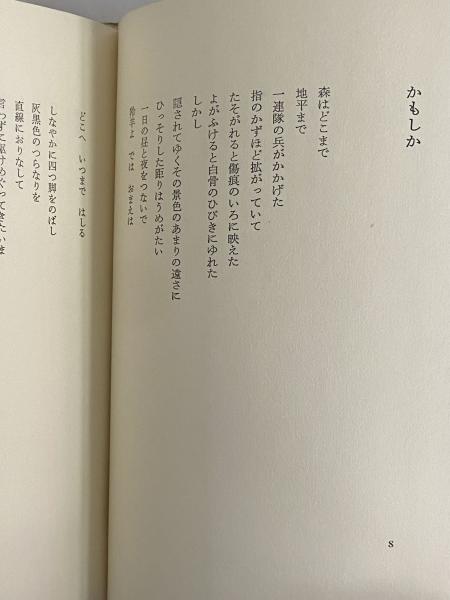 かもしか
森はどこまで
地平まで
一連隊の兵がかかげた
指のかずほど拡がっていて
たそがれると傷痕のいろに映えた
よがふけると白骨のひびきにゆれた
しかし
隠されてゆくその景色のあまりの遠さに
ひっそりした距りはうめがたい
一日の昼と夜をつないで
羚羊よ では おまえは
どこへ いつまで はしる
しなやかに四つ脚をのばし
灰黒色のつらなりを
直線におりなして
言わずに駆けめぐってきたいま
8